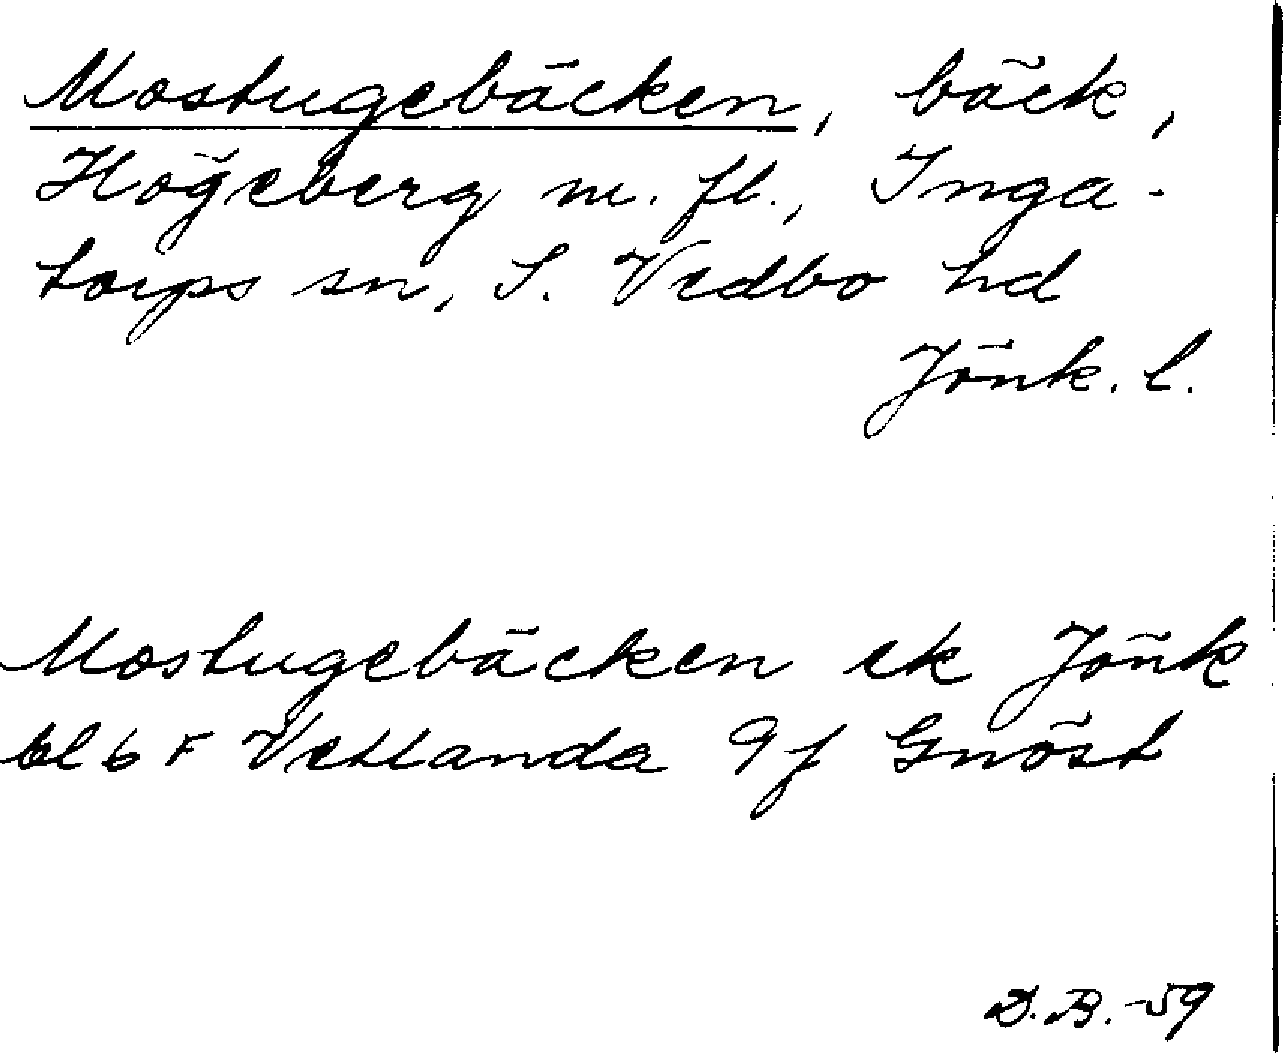 Mostugebäcken, bäck,
Högeberg m. fl., Inga-
torps sn, S. Vedbo hd
Jönk. l.
Mostugebäcken ek Jönk
bl 6 F Vetlanda 9f Gnöst
D.B. -59